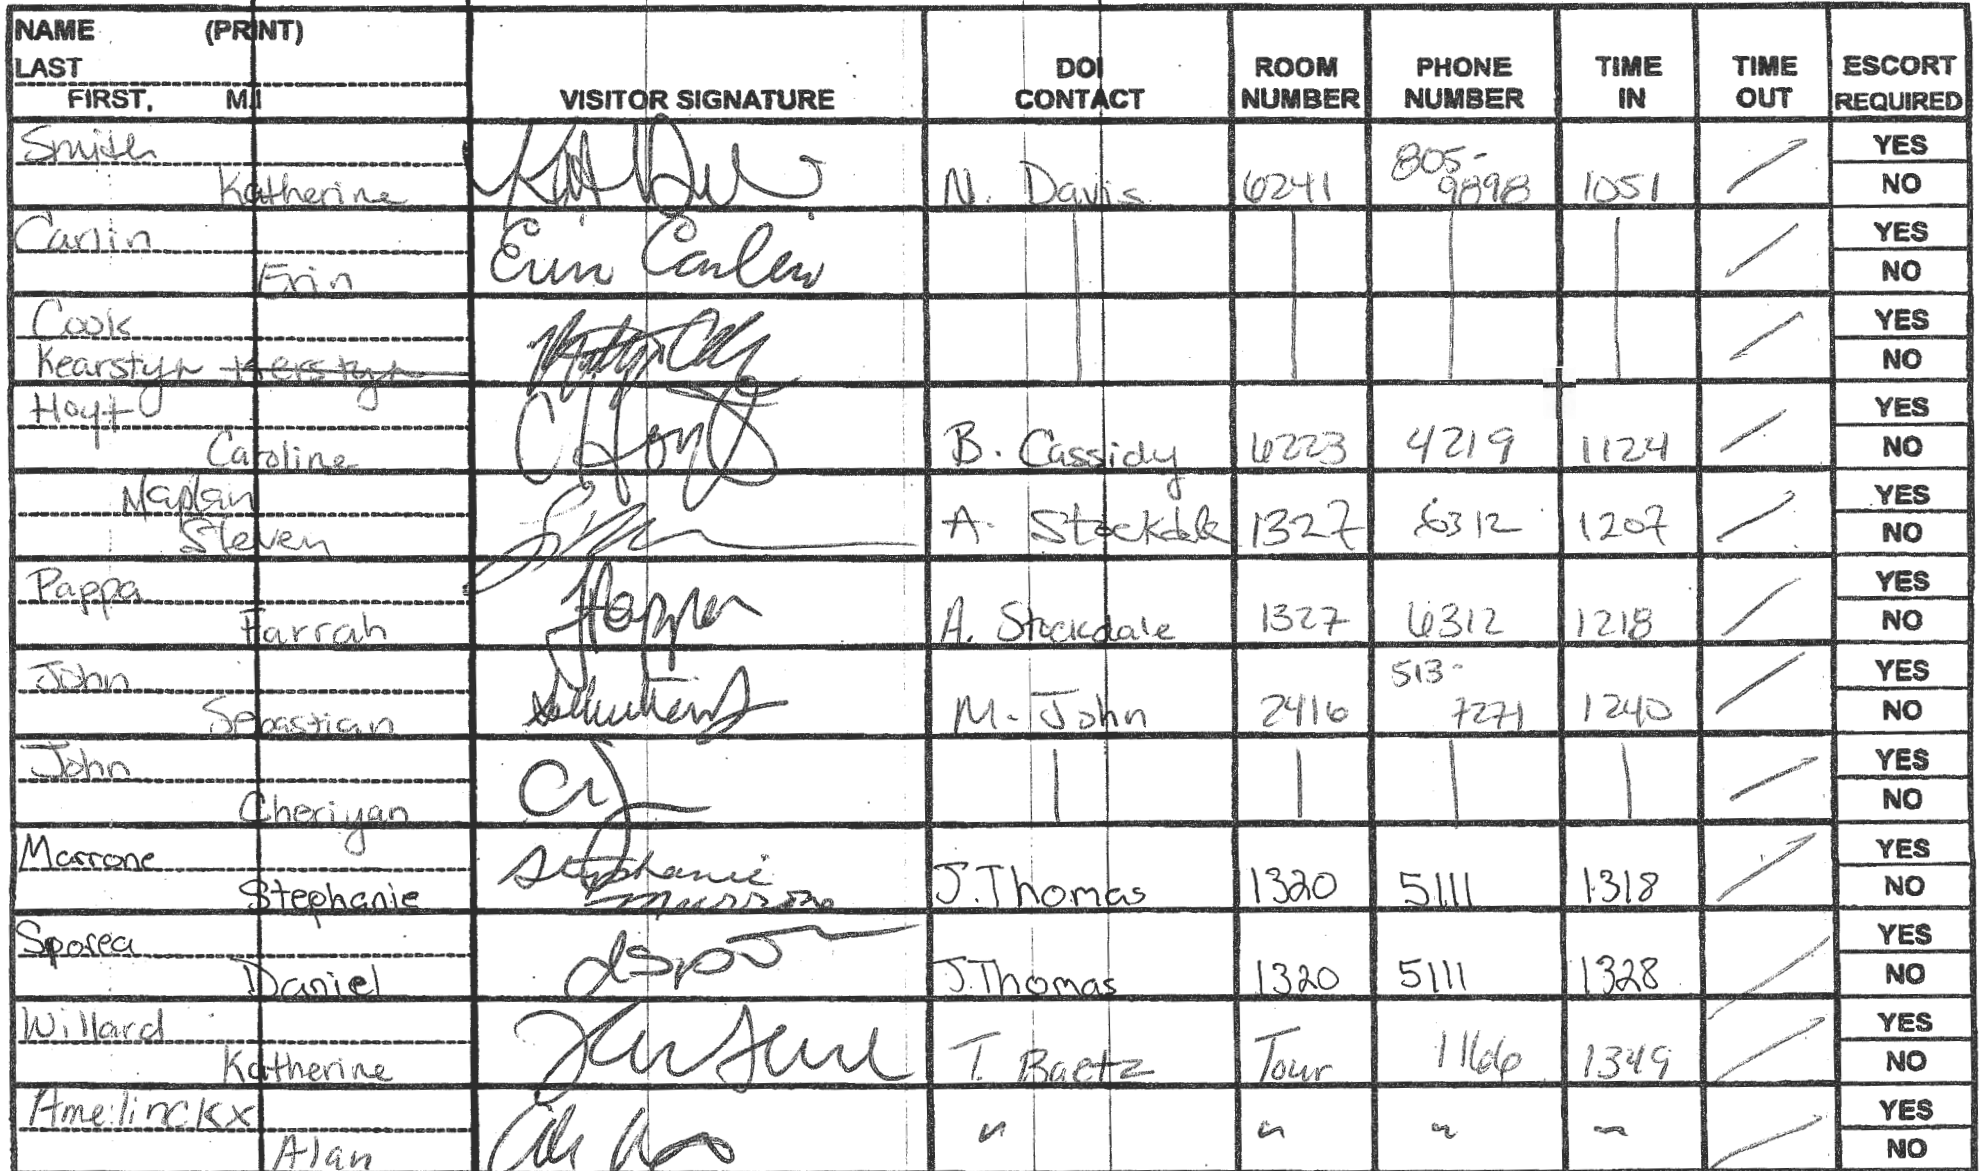 NAME (PRINT)
LAST
FIRST, M.I
VISITOR SIGNATURE
DOI CONTACT
ROOM NUMBER
PHONE NUMBER
TIME IN
TIME OUT
ESCORT REQUIRED
Smith
Katherine
N. Davis 6241 805-9898 1051
YES
NO
Carlin
Erin
Erin Carlin
YES
NO
Cook
Kearstyn Kerstyn
YES
NO
Hoyt
Caroline
CHoyt
B. Cassidy 6223 4219 1124
YES
NO
Kaplan
Steven
A. Stockdale 1327 6312 1207
YES
NO
Pappa
Farrah
A. Stockdale 1327 6312 1218
YES
NO
John
Sebastian
M. John 2416 513-7271 1240
YES
NO
John
Cheriyan
YES
NO
Marrone
Stephanie
Stephanie Marrone
J. Thomas 1320 5111 1318
YES
NO
Sporea
Daniel
J. Thomas 1320 5111 1328
YES
NO
Willard
Katherine
T. Baetz Tour 1166 1349
YES
NO
Ameilinckx
Alan
YES
NO